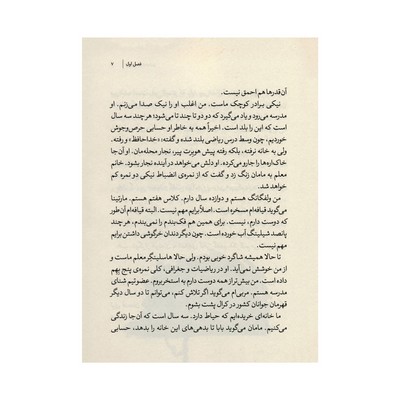 فصل اول | ۷
آن‌قدرها هم احمق نیست.
نیکی برادر کوچک ماست. من اغلب او را نیک صدا می‌زنم. او
مدرسه می‌رود و یاد می‌گیرد که دو دو تا چند تا می‌شود؛ هر چند سه سال
است که این را بلد است. اخیراً همه به خاطر او حسابی حرص‌وجوش
خوردیم، چون وسط درس ریاضی بلند شده و گفته: «خداحافظ» و رفته.
ولی به خانه نرفته، بلکه رفته پیش هوبرت پیر، نجار محله‌مان. آن‌جا
خاک‌اره‌ها را جارو می‌کرده. او دلش می‌خواهد در آینده نجار بشود. خانم
معلم به مامان زنگ زد و گفت که از نمره‌ی انضباط نیکی دو نمره کم
خواهد شد.
من ولفگانگ هستم و دوازده سال دارم. کلاس هفتم هستم. مارتینا
می‌گوید قیافه‌ام مسخره است. اصلاً برایم مهم نیست. البته قیافه‌ام آن‌طور
که دوست دارم، نیست. برای همین هم فک‌بندم را نمی‌بندم، هرچند
پانصد شیلینگ آب خورده است. چون دیگر دندان خرگوشی داشتن برایم
مهم نیست.
تا حالا همیشه شاگرد خوبی بودم. ولی حالا هاسلینگر معلم ماست و
از من خوشش نمی‌آید. او در ریاضیات و جغرافی، کلی نمره‌ی پنج بهم
داده است. من بیش‌تر از همه دوست دارم به استخر بروم. عضو تیم شنای
مدرسه هستم. مربی‌ام می‌گوید اگر تلاش کنم، می‌توانم تا دو سال دیگر
قهرمان جوانان کشور در کرال پشت بشوم.
ما خانه‌ای خریده‌ایم که حیاط دارد. سه سال است که آن‌جا زندگی
می‌کنیم. مامان می‌گوید بابا تا بدهی‌های این خانه را بدهد، حسابی